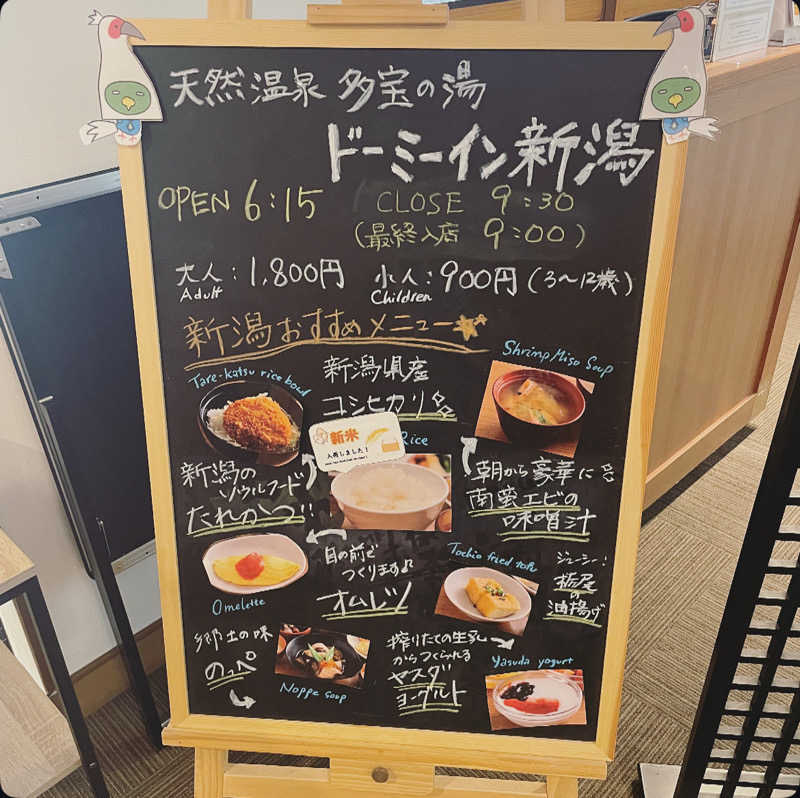 天然温泉 多宝の湯
ドーミーイン新潟
OPEN 6:15 CLOSE 9:30
(最終入店 9:00)
大人:1,800円 小人:900円(3〜12歳)
Adult Children
新潟おすすめメニュー
Tare-katsu rice bowl
新潟県産
コシヒカリ
Rice
新米
入荷しました!
Shrimp Miso Soup
新潟の
ソウルフード
たれかつ!!
朝から豪華に
南蛮エビの
味噌汁
Omelette
目の前で
つくります♪
オムレツ
Tochio fried tofu
ジューシー!
栃尾
の
油揚げ
郷土の味
のっぺ
Noppe soup
搾りたての生乳
からつくられる
ヤスダ
ヨーグルト
Yasuda yogurt